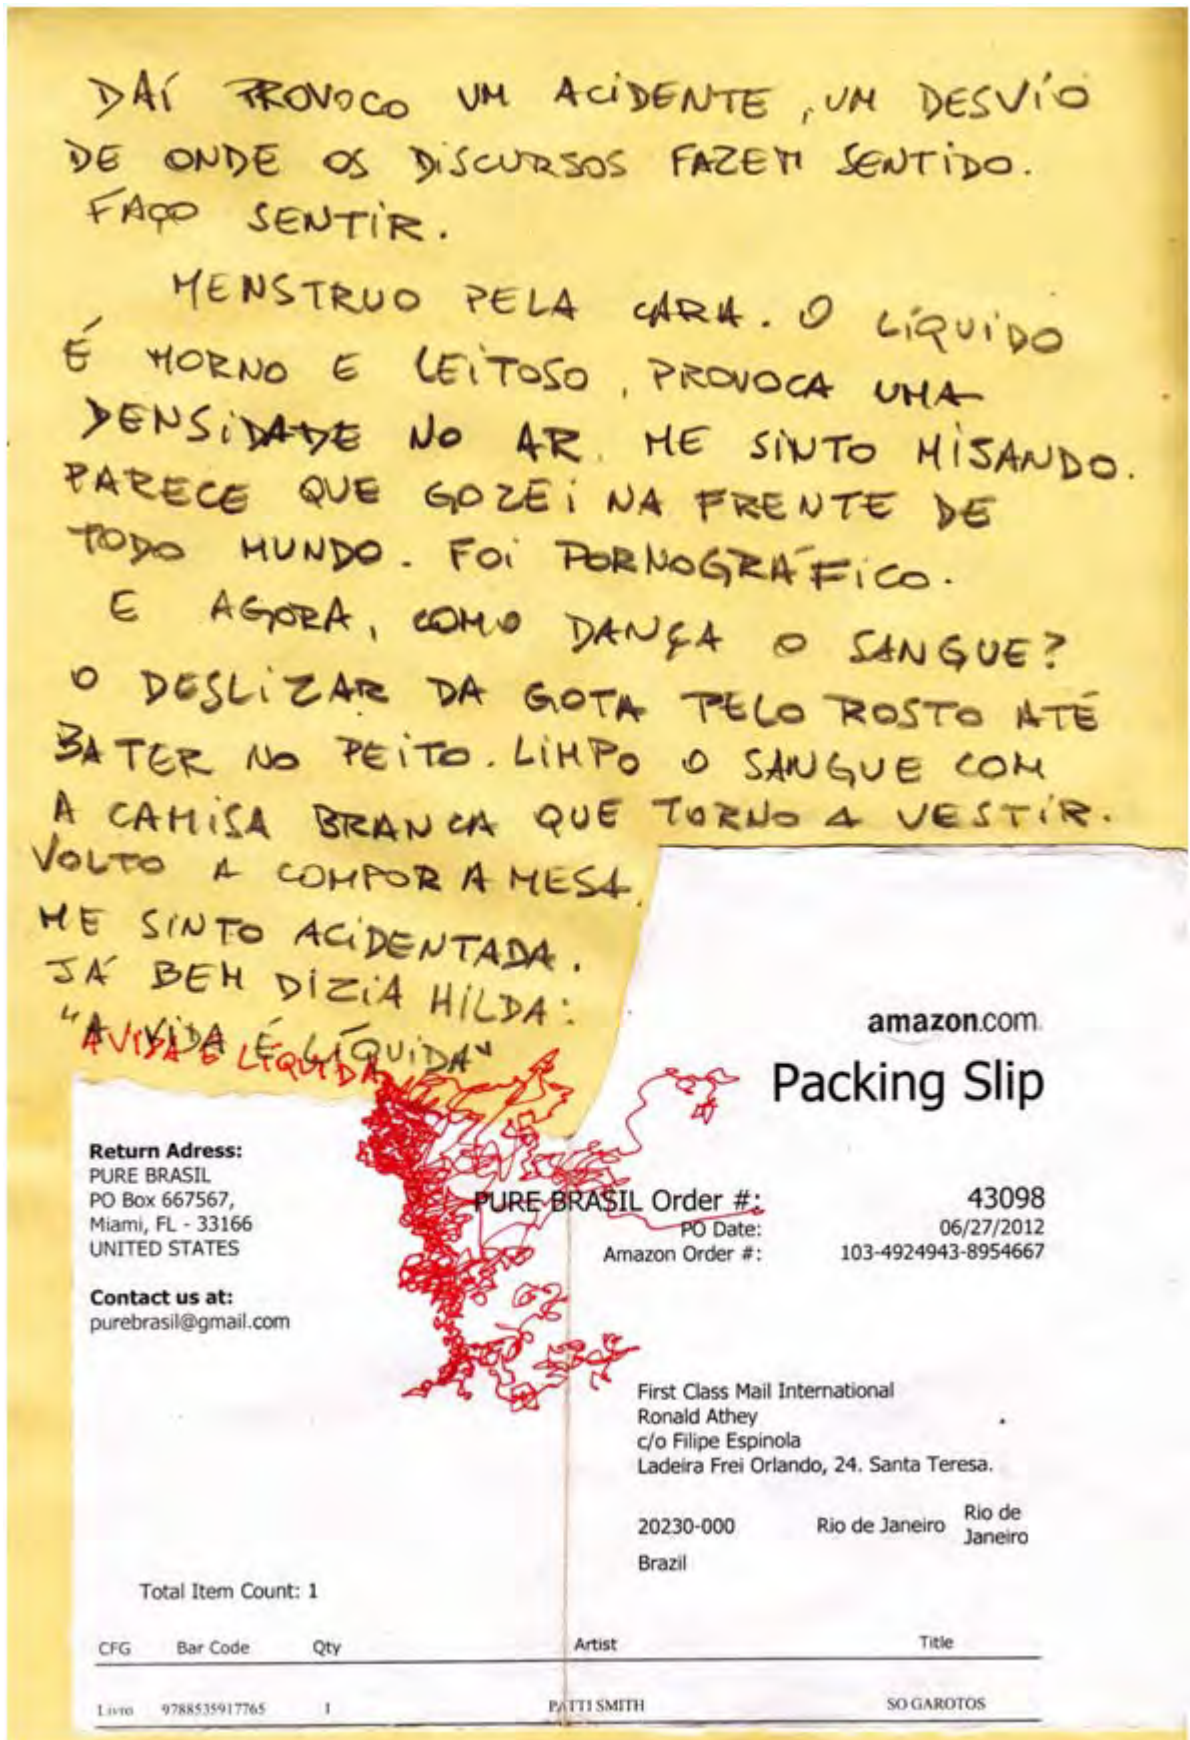 DAÍ PROVOCO UM ACIDENTE, UM DESVIO
DE ONDE OS DISCURSOS FAZEM SENTIDO.
FAÇO SENTIR.
MENSTRUO PELA CARA. O LÍQUIDO
É MORNO E LEITOSO, PROVOCA UMA
DENSIDADE NO AR. ME SINTO MIJANDO.
PARECE QUE GOZEI NA FRENTE DE
TODO MUNDO. FOI PORNOGRÁFICO.
E AGORA, COMO DANÇA O SANGUE?
O DESLIZAR DA GOTA PELO ROSTO ATÉ
BATER NO PEITO. LIMPO O SANGUE COM
A CAMISA BRANCA QUE TORNO A VESTIR.
VOLTO A COMPOR A MESA.
ME SINTO ACIDENTADA.
JÁ BEM DIZIA HILDA:
"A VIDA É LÍQUIDA"
A VIDA É LÍQUIDA
amazon.com
Packing Slip
Return Adress:
PURE BRASIL
PO Box 667567,
Miami, FL - 33166
UNITED STATES
Contact us at:
purebrasil@gmail.com
PURE BRASIL Order #: 43098
PO Date: 06/27/2012
Amazon Order #: 103-4924943-8954667
First Class Mail International
Ronald Athey
c/o Filipe Espinola
Ladeira Frei Orlando, 24. Santa Teresa.
20230-000 Rio de Janeiro Rio de Janeiro
Brazil
Total Item Count: 1
CFG Bar Code Qty Artist Title
Livro 9788535917765 1 PATTI SMITH SO GAROTOS